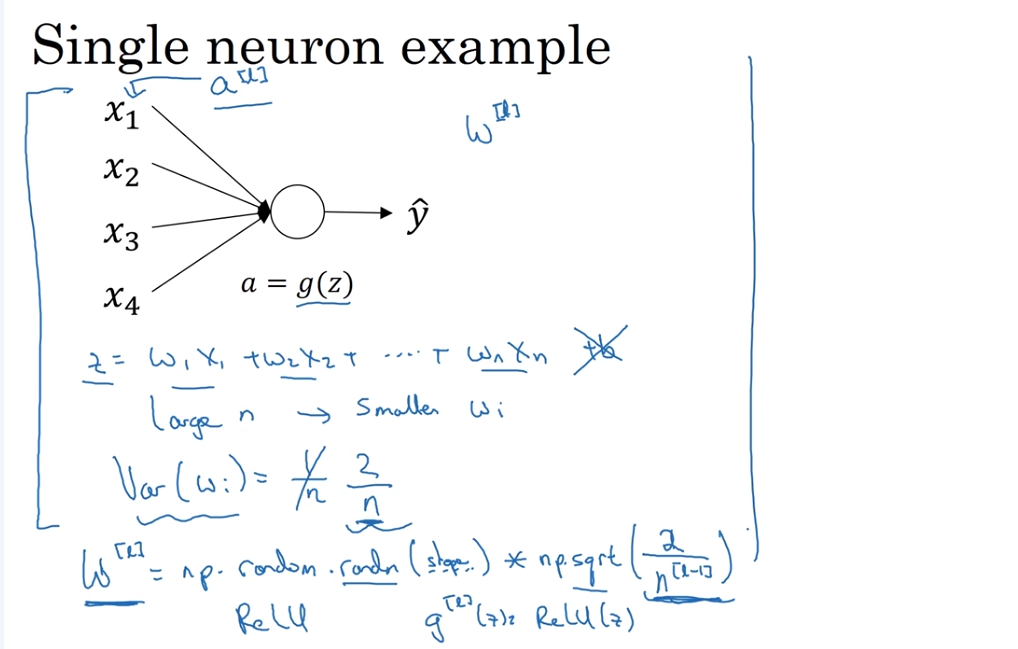 Single neuron example
a^[l]
x₁
w^[l]
x₂
x₃
ŷ
x₄
a = g(z)
z = w₁x₁ + w₂x₂ + .... + wₙxₙ +b
Large n → Smaller wᵢ
Var(wᵢ) = 1/n 2/n
W^[l] = np.random.randn(shape..) * np.sqrt(2/n^[l-1])
ReLU g^[l](z) = ReLU(z)